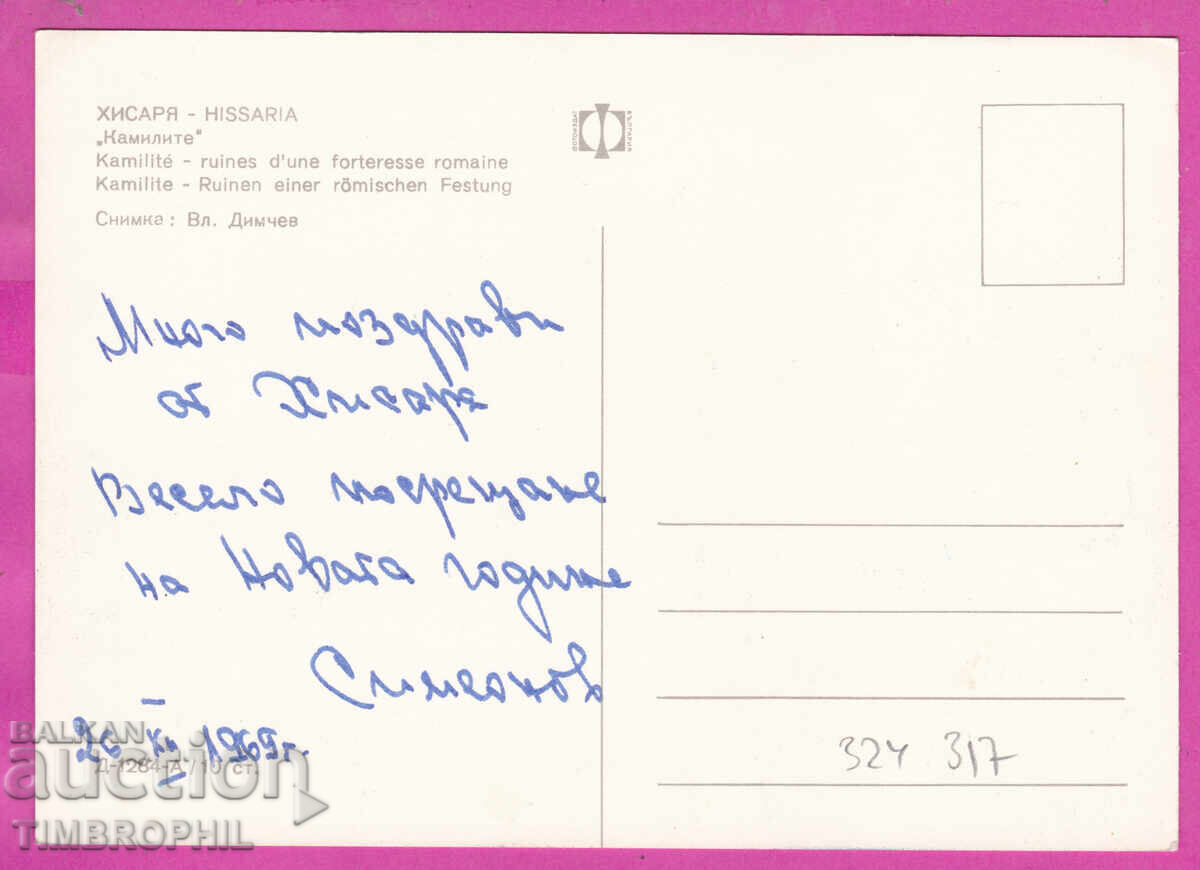 ХИСАРЯ - HISSARIA
„Камилите"
Kamilité - ruines d'une forteresse romaine
Kamilite - Ruinen einer römischen Festung
Снимка: Вл. Димчев
ФОТОИЗДАТ
БЪЛГАРИЯ
Много поздрави
от Хисаря
Весело посрещане
на Новата година
Симеонов
26 XII 1969 г.
Д-1284-А / 10 ст.
324 317
BALKAN
auction
TIMBROPHIL